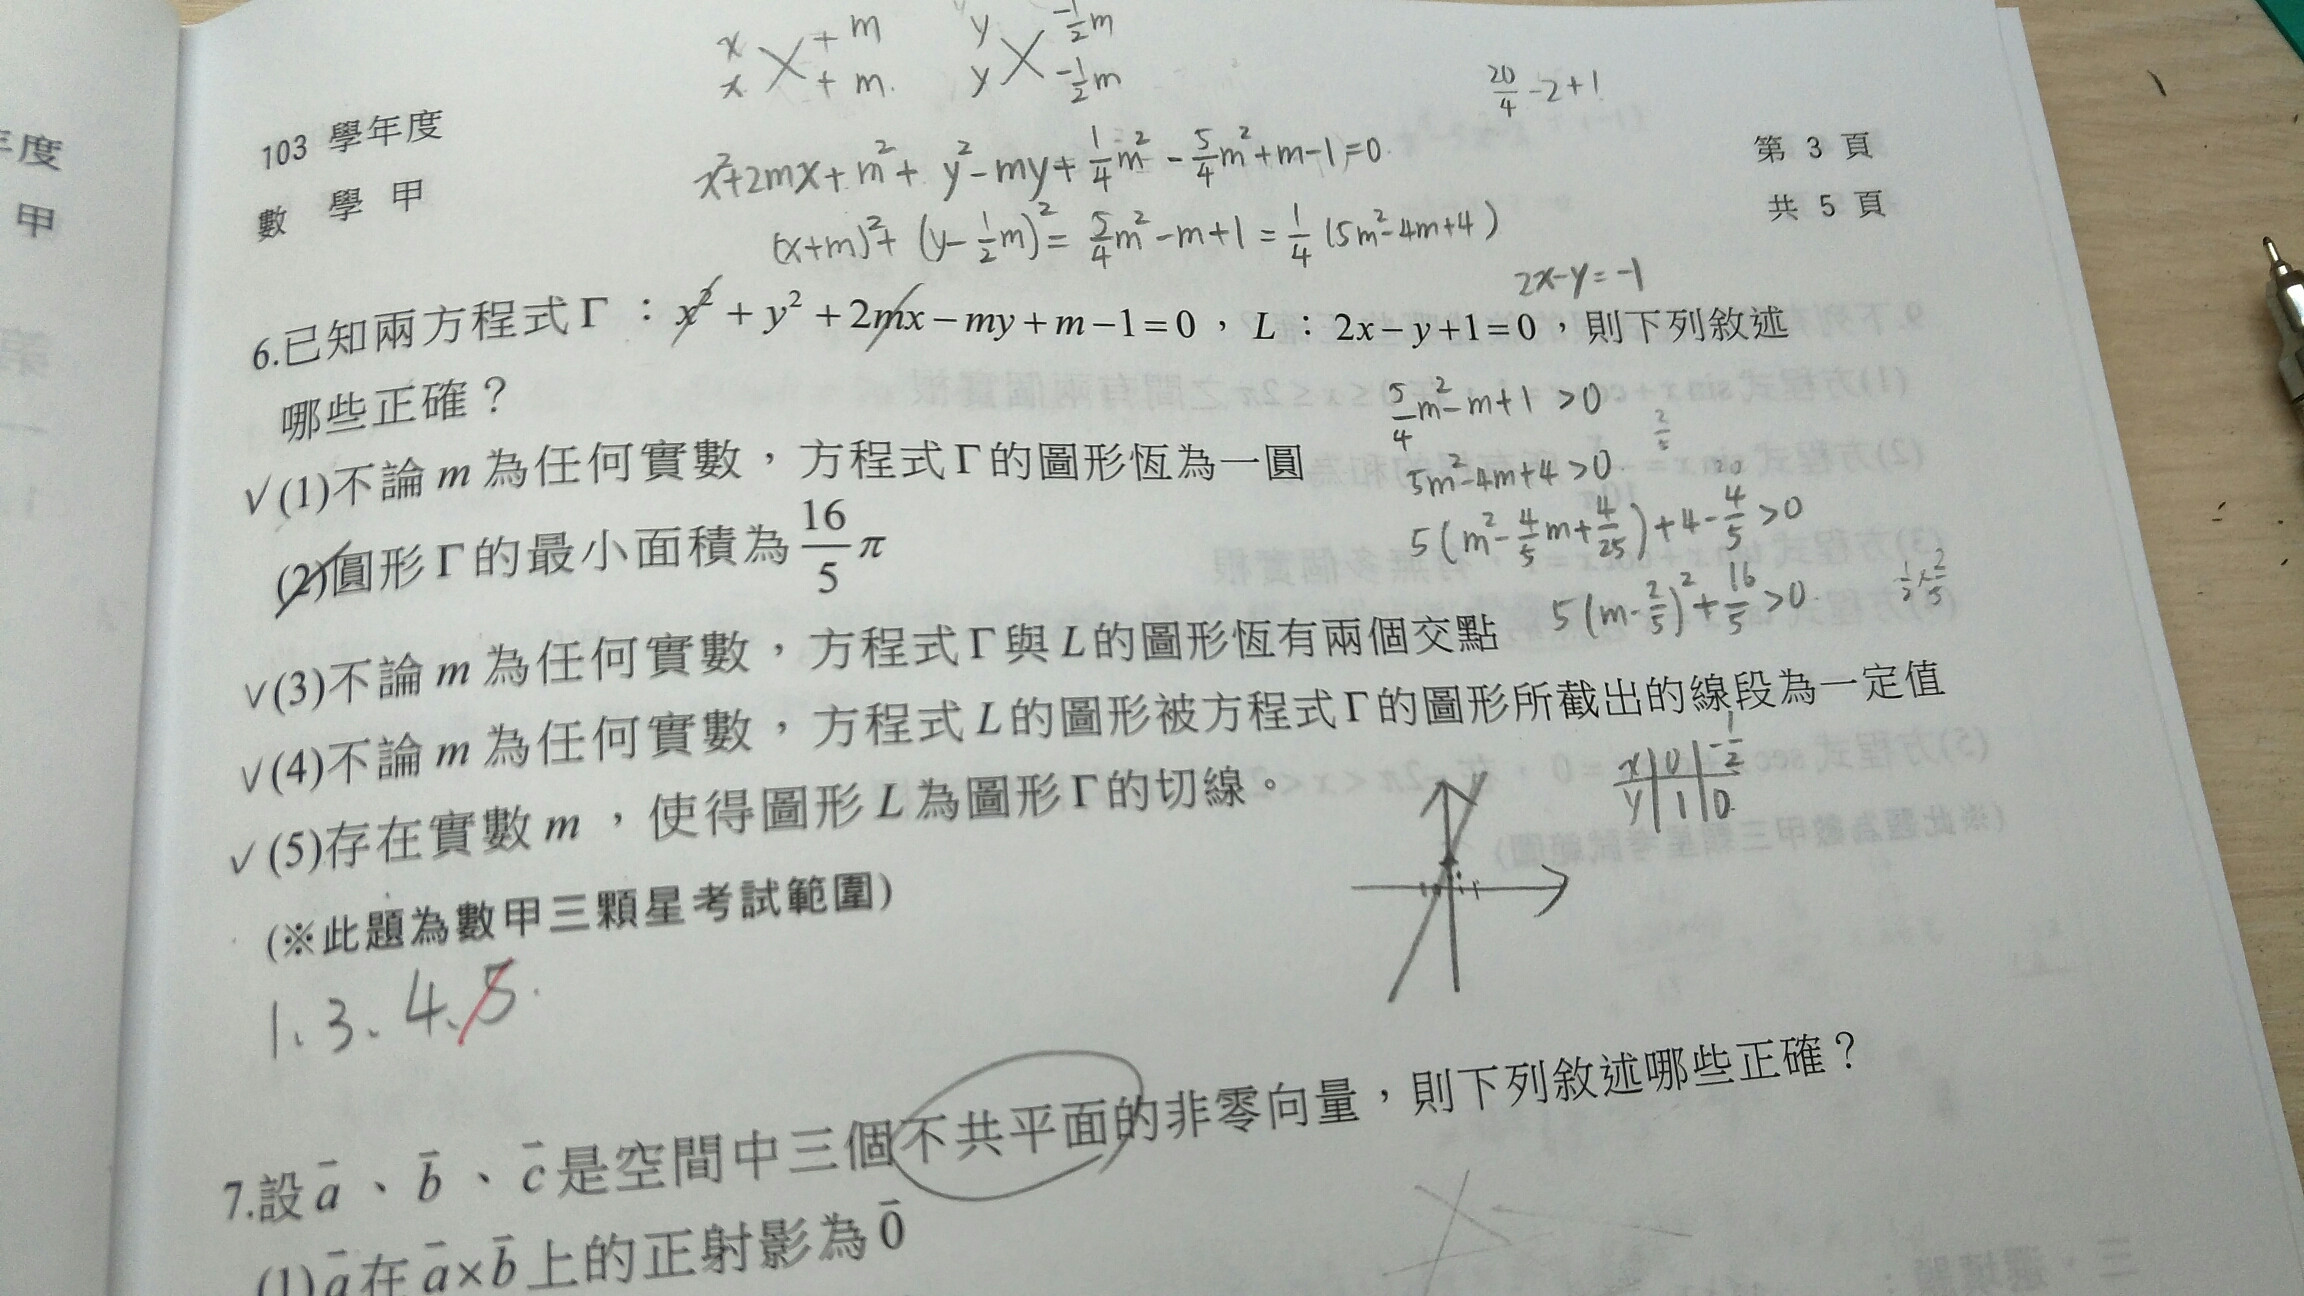 x +m y -1/2m
x +m. y -1/2m
20/4-2+1
年度
甲
103 學年度
數 學 甲
第 3 頁
共 5 頁
x²+2mx+m²+y²-my+1/4m²-5/4m²+m-1=0.
(x+m)²+(y-1/2m)²=5/4m²-m+1=1/4(5m²-4m+4)
2x-y=-1
6.已知兩方程式Γ：x²+y²+2mx-my+m-1=0，L：2x-y+1=0，則下列敘述
哪些正確？
5/4m²-m+1>0
2/5
✓(1)不論 m 為任何實數，方程式Γ的圖形恆為一圓
5m²-4m+4>0.
20
(2)圓形Γ的最小面積為16/5π
5(m²-4/5m+4/25)+4-4/5>0
5(m-2/5)²+16/5>0.
✓(3)不論 m 為任何實數，方程式Γ與L的圖形恆有兩個交點
✓(4)不論 m 為任何實數，方程式L的圖形被方程式Γ的圖形所截出的線段為一定值
x 0 -1/2
y 1 0
✓(5)存在實數m，使得圖形L為圖形Γ的切線。
(※此題為數甲三顆星考試範圍)
1、3、4、5.
7.設a、b、c是空間中三個不共平面的非零向量，則下列敘述哪些正確？
(1)a在a×b上的正射影為0